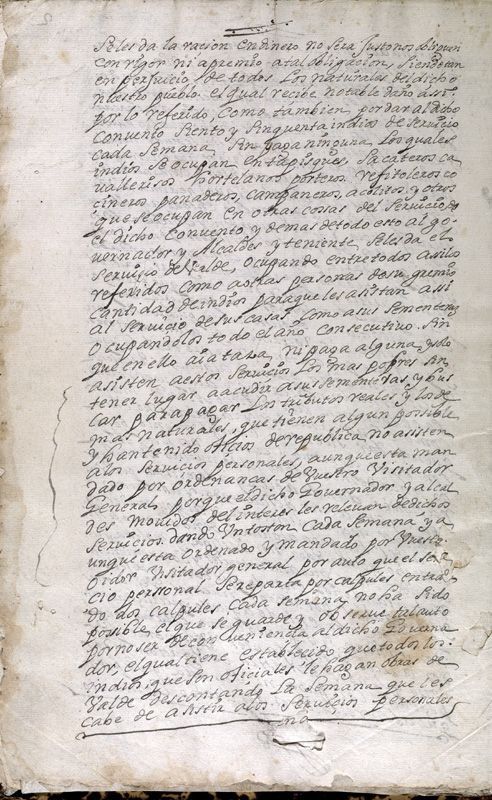 se les da la racion en dinero no sera justo nos obliguen
con rigor ni apremio atal obligacion, siendo tan
en perjuicio de todos los naturales del dicho
nuestro pueblo. el qual recibe notable daño assi
por lo referido, como tambien por dar al dicho
convento siento y sinquenta indios de servicio
cada semana sin paga ninguna los quales
indios se ocupan en tapisques, sacateros ca
vallerisos hortelanos porteros refitoleros co
cineros panaderos, campaneros, acolitos, y otros
que se ocupan en otras cossas del servicio de
el dicho convento y demas de todo esto al go
vernador y Alcaldes y teniente se les da el
servicio de valde, ocupando entre todos asi los
referidos como a otras personas de su gremio
cantidad de indios para que les asistan assi
al servicio de sus casas como a sus sementeras
ocupandolos todo el año consecutivo. sin
que en ello aia tassa, ni paga alguna, y solo
asisten a estos servicios los mas pobres sin
tener lugar a acudir a sus sementeras, y bus
car para pagar los tributos reales y los de
mas naturales, que tienen algun possible
y han tenido oficios de republica no asisten
a los servicios personales, aunque esta man
dado por ordenancas de Vuestro Visitador
General porque el dicho Governador y alcal
des movidos del interes les relevan de dichos
servicios. dando un toston cada semana y a
unque esta ordenado y mandado por Vuestro
oidor Visitador general por auto que el servi
cio personal se reparta por calpules entran
do dos calpules cada semana no ha sido
possible el que se guarde y observe tal auto
por no ser de conveniencia al dicho Governa
dor, el qual tiene establecido que todos los
indios, que son oficiales le hagan obras de
valde descontando la semana que les
cabe de asistir a los servicios personales